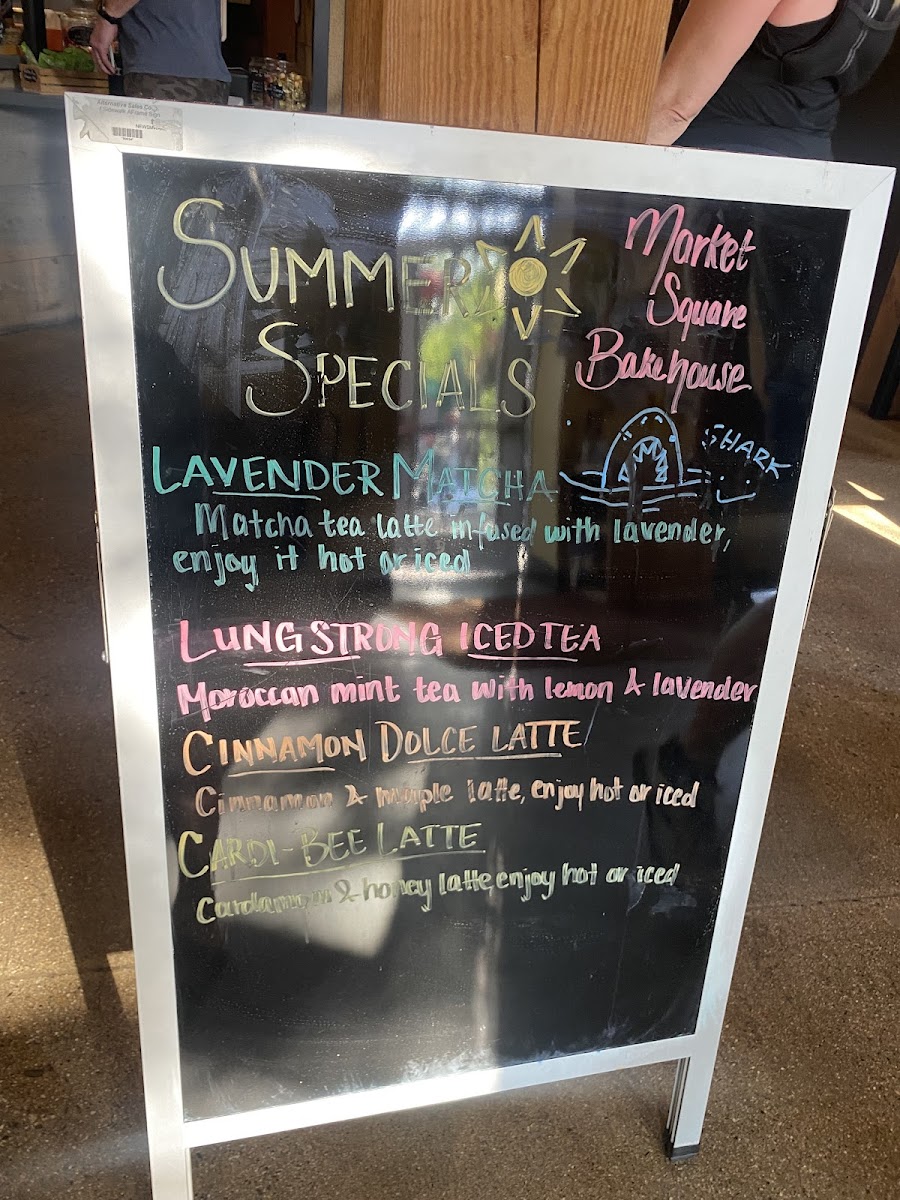 Alternative Sales Co.
SUMMER
SPECIALS
Market
Square
Bakehouse
SHARK
LAVENDER MATCHA
Matcha tea latte infused with lavender,
enjoy it hot or iced
LUNG STRONG ICED TEA
Moroccan mint tea with lemon & lavender
CINNAMON DOLCE LATTE
Cinnamon & maple latte, enjoy hot or iced
CARDI-BEE LATTE
Cardamom & honey latte, enjoy hot or iced